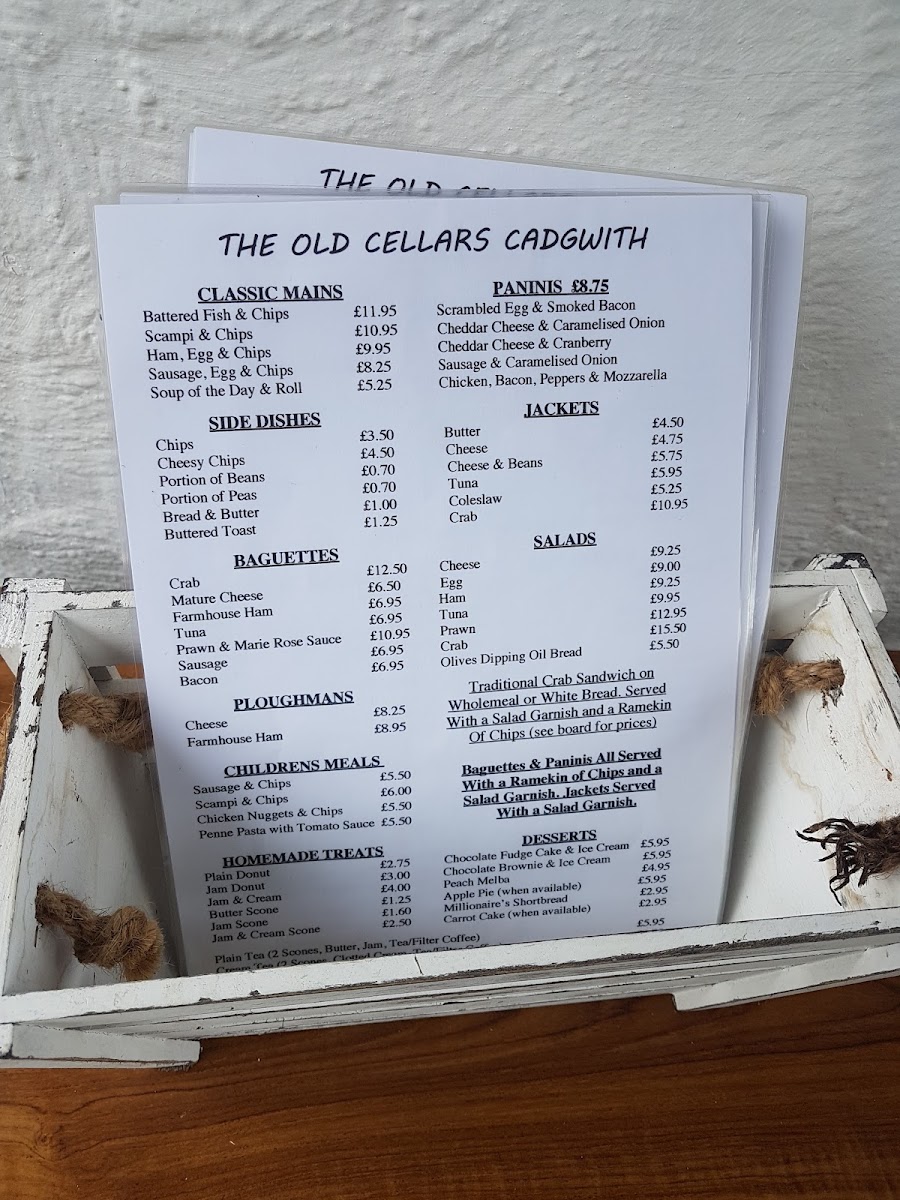 THE OLD
THE OLD CELLARS CADGWITH
CLASSIC MAINS
Battered Fish & Chips £11.95
Scampi & Chips £10.95
Ham, Egg & Chips £9.95
Sausage, Egg & Chips £8.25
Soup of the Day & Roll £5.25
SIDE DISHES
Chips £3.50
Cheesy Chips £4.50
Portion of Beans £0.70
Portion of Peas £0.70
Bread & Butter £1.00
Buttered Toast £1.25
BAGUETTES
Crab £12.50
Mature Cheese £6.50
Farmhouse Ham £6.95
Tuna £6.95
Prawn & Marie Rose Sauce £10.95
Sausage £6.95
Bacon £6.95
PLOUGHMANS
Cheese £8.25
Farmhouse Ham £8.95
CHILDRENS MEALS
Sausage & Chips £5.50
Scampi & Chips £6.00
Chicken Nuggets & Chips £5.50
Penne Pasta with Tomato Sauce £5.50
HOMEMADE TREATS
Plain Donut £2.75
Jam Donut £3.00
Jam & Cream £4.00
Butter Scone £1.25
Jam Scone £1.60
Jam & Cream Scone £2.50
PANINIS £8.75
Scrambled Egg & Smoked Bacon
Cheddar Cheese & Caramelised Onion
Cheddar Cheese & Cranberry
Sausage & Caramelised Onion
Chicken, Bacon, Peppers & Mozzarella
JACKETS
Butter £4.50
Cheese £4.75
Cheese & Beans £5.75
Tuna £5.95
Coleslaw £5.25
Crab £10.95
SALADS
Cheese £9.25
Egg £9.00
Ham £9.25
Tuna £9.95
Prawn £12.95
Crab £15.50
Olives Dipping Oil Bread £5.50
Traditional Crab Sandwich on
Wholemeal or White Bread. Served
With a Salad Garnish and a Ramekin
Of Chips (see board for prices)
Baguettes & Paninis All Served
With a Ramekin of Chips and a
Salad Garnish. Jackets Served
With a Salad Garnish.
DESSERTS
Chocolate Fudge Cake & Ice Cream £5.95
Chocolate Brownie & Ice Cream £5.95
Peach Melba £4.95
Apple Pie (when available) £5.95
Millionaire's Shortbread £2.95
Carrot Cake (when available) £2.95
Plain Tea (2 Scones, Butter, Jam, Tea/Filter Coffee) £5.95
Cream Tea (2 Scones, Clotted Cream, Tea/Filter